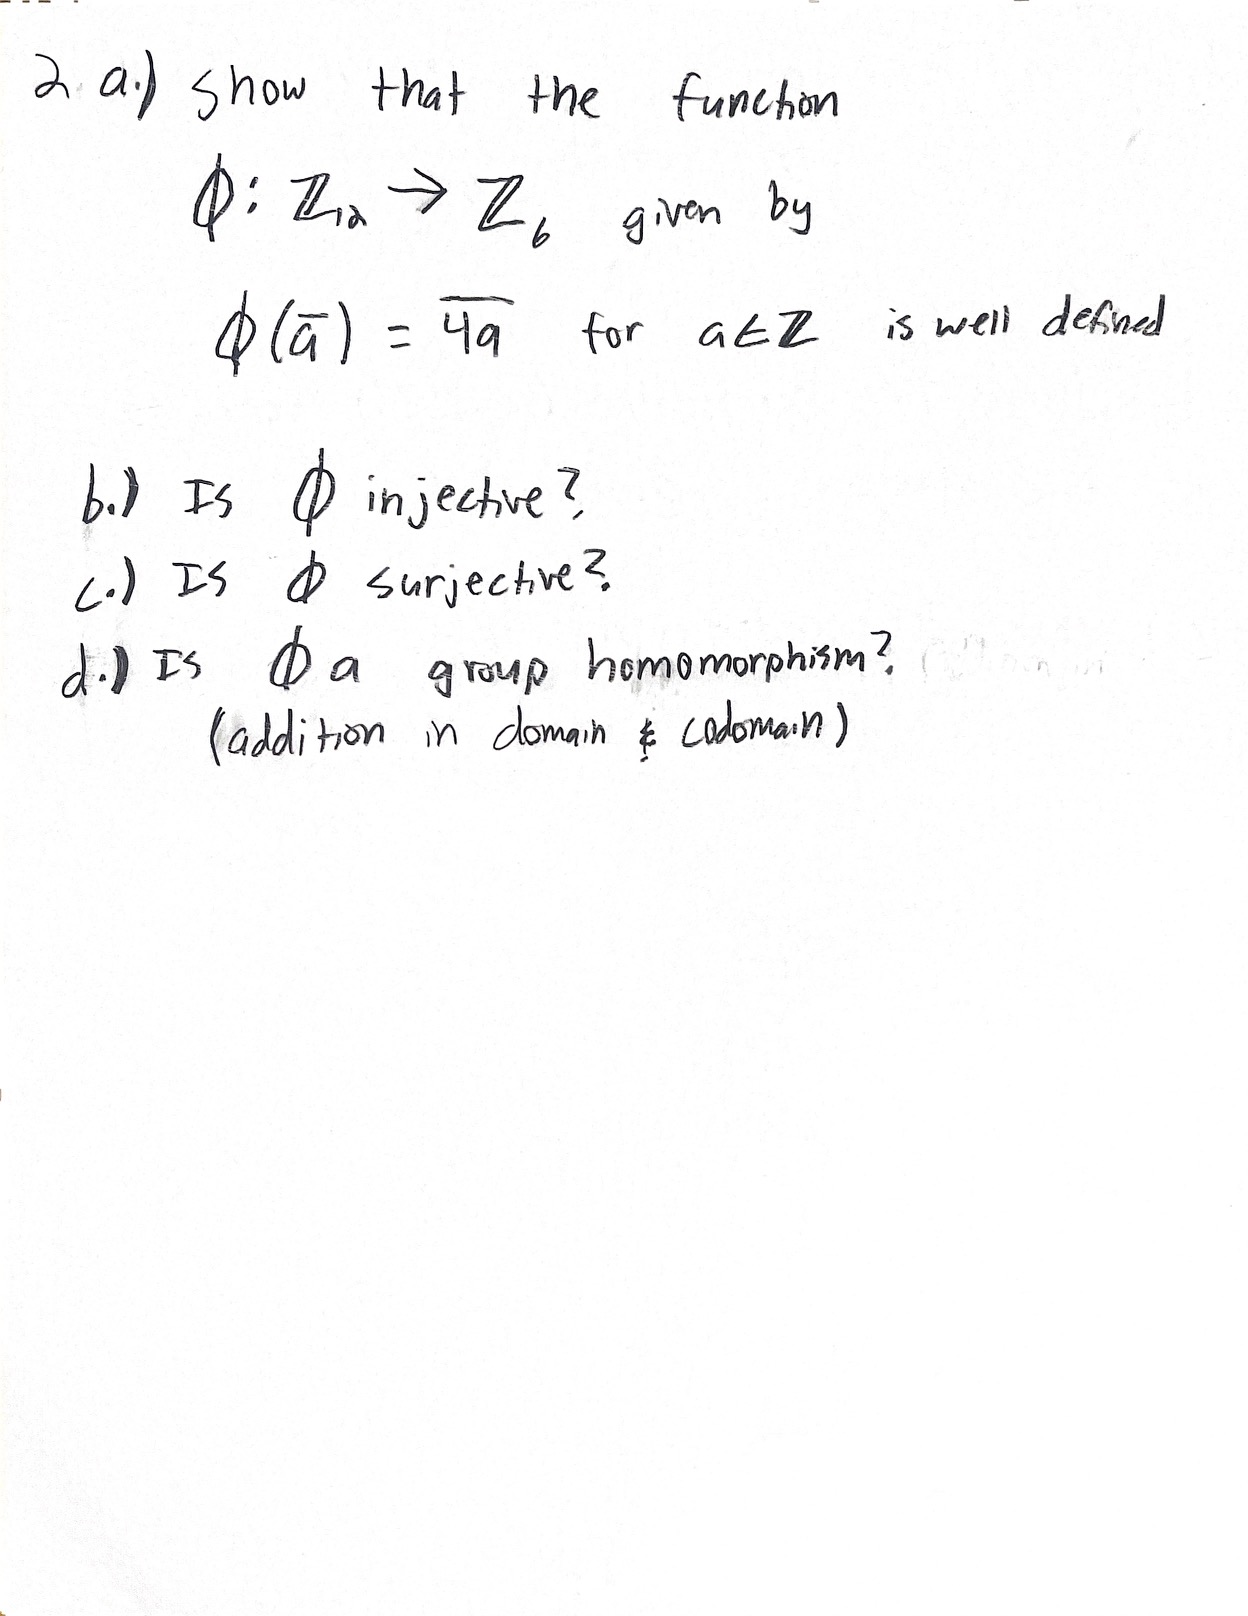 2. a.) show that the function
ϕ: ℤ₁₂ → ℤ₆ given by
ϕ(a̅) = 4̅a̅ for a∈ℤ is well defined
b.) Is ϕ injective?
c.) Is ϕ surjective?
d.) Is ϕ a group homomorphism?
(addition in domain & codomain)